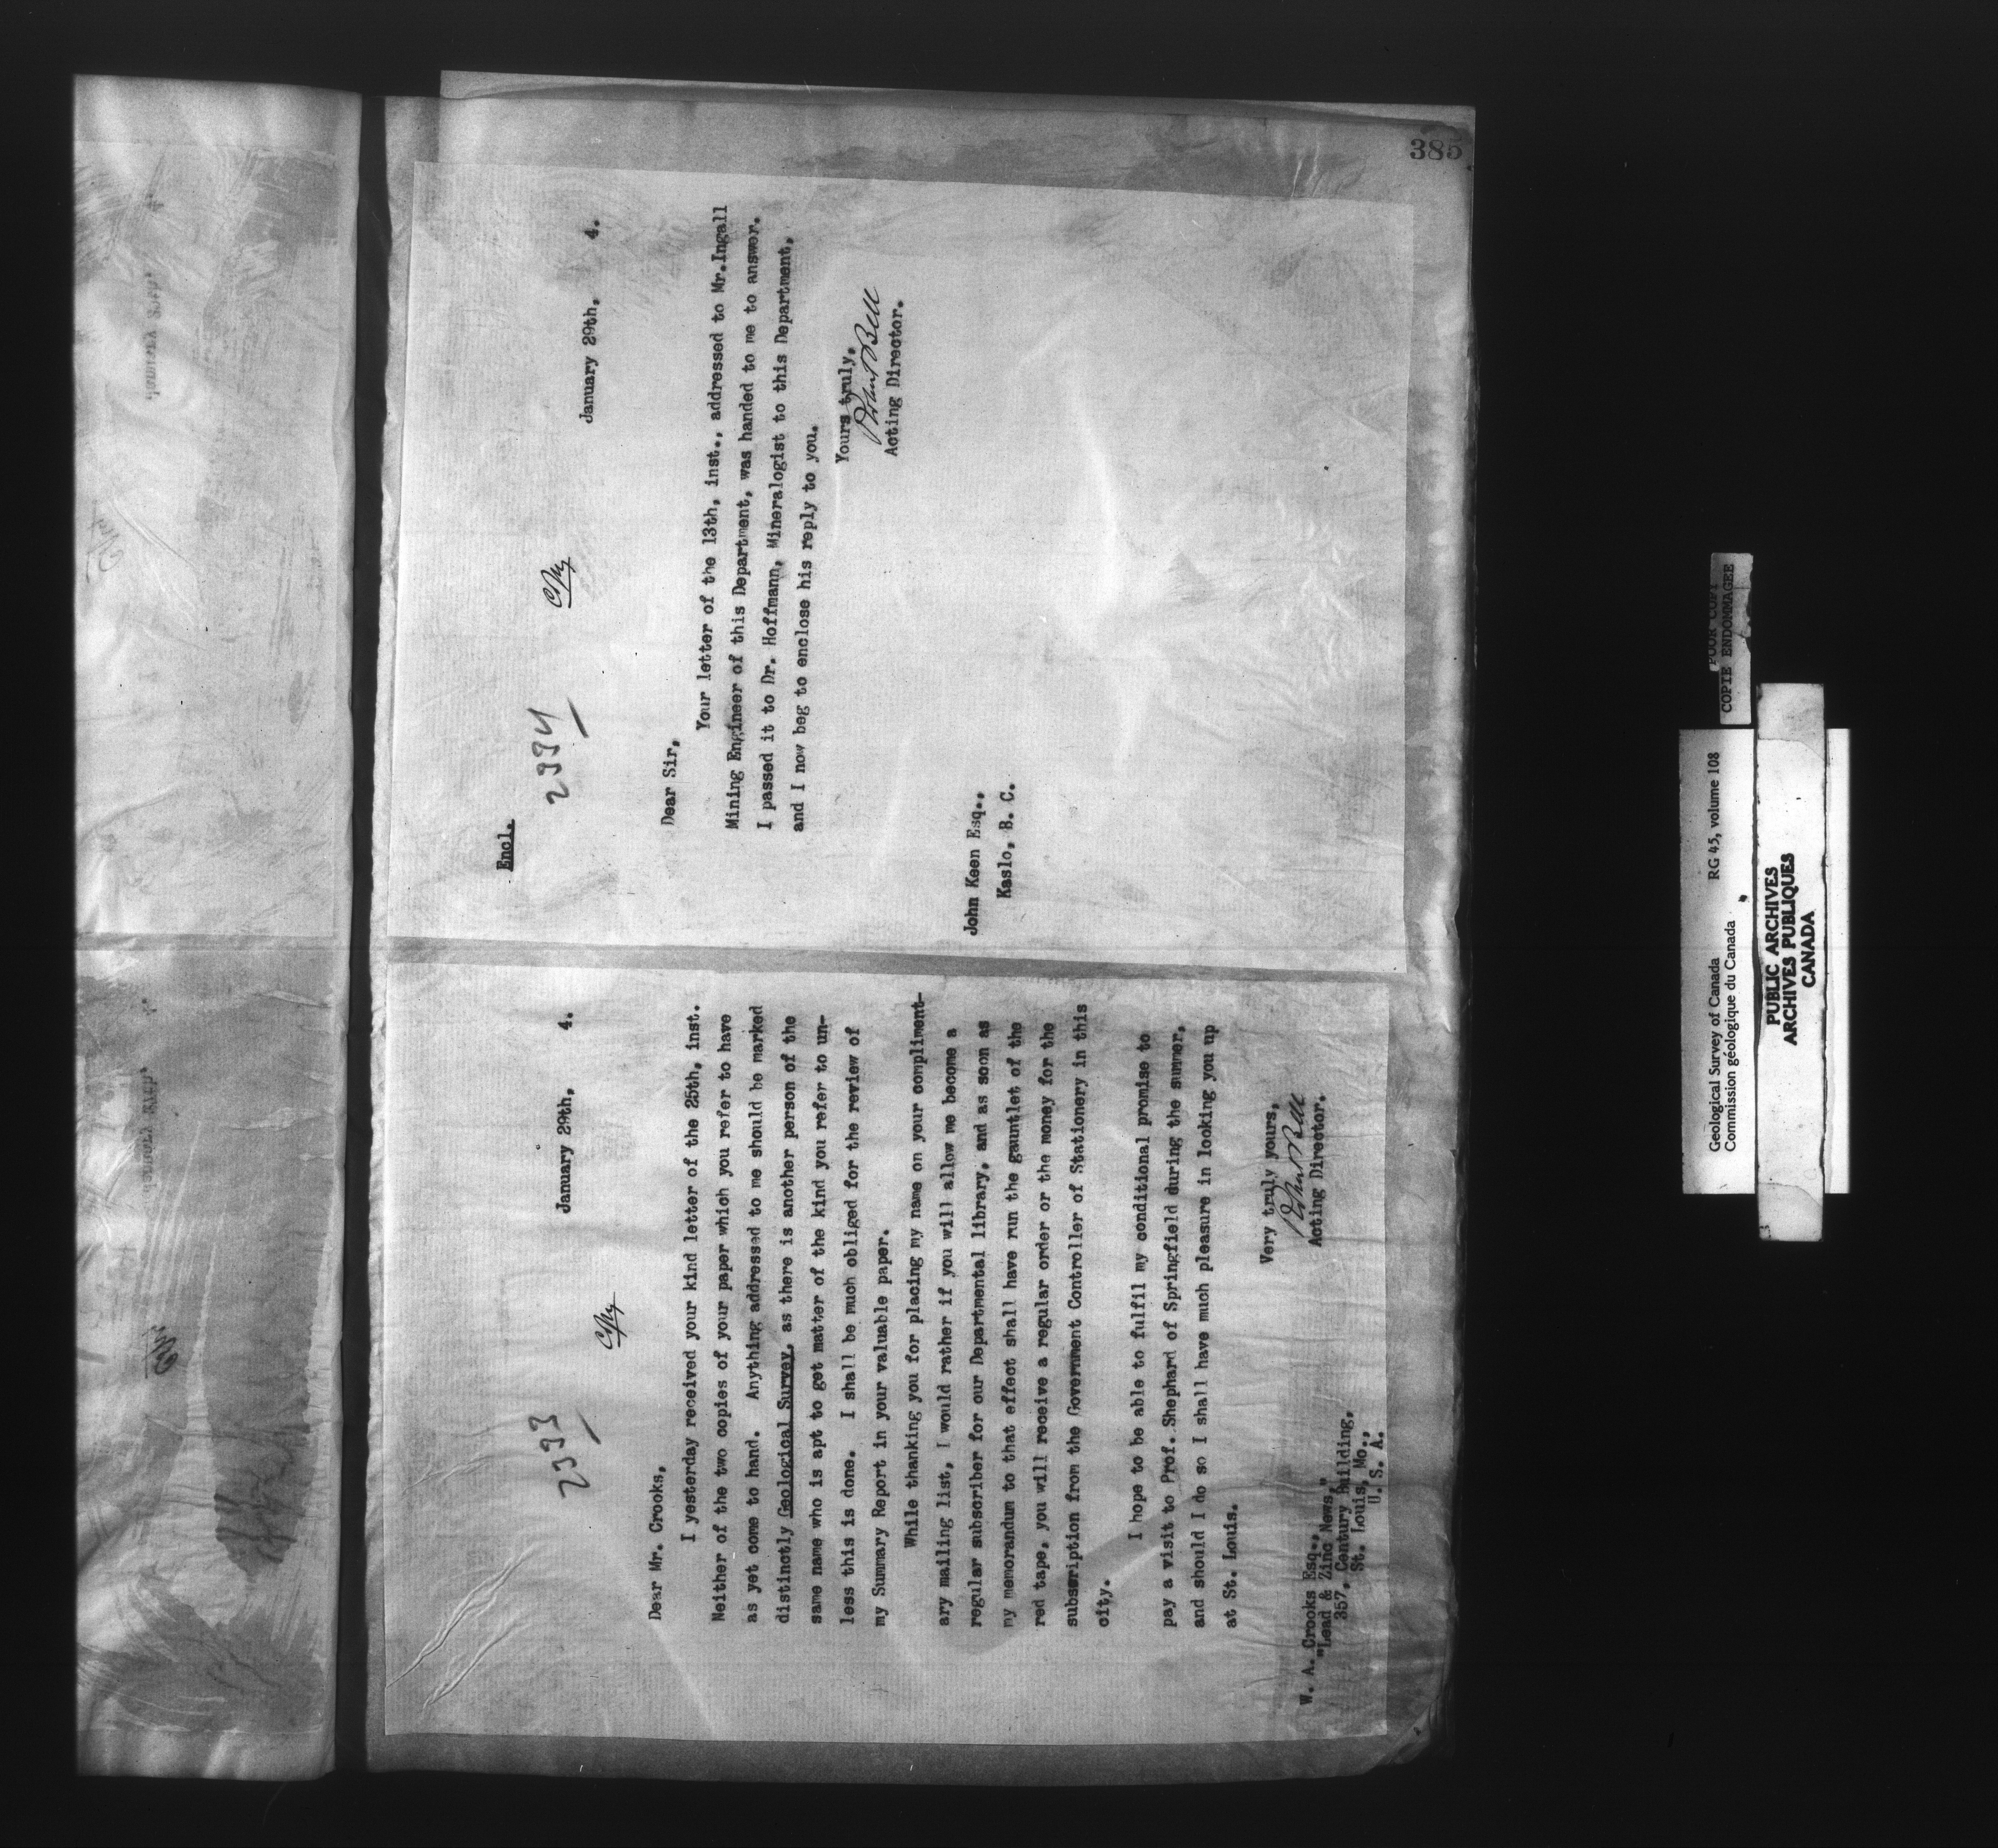 385
2393
Cpy
January 29th, 4.
Dear Mr. Crooks,
I yesterday received your kind letter of the 25th, inst.
Neither of the two copies of your paper which you refer to have
as yet come to hand. Anything addressed to me should be marked
distinctly Geological Survey, as there is another person of the
same name who is apt to get matter of the kind you refer to un-
less this is done. I shall be much obliged for the review of
my Summary Report in your valuable paper.
While thanking you for placing my name on your compliment-
ary mailing list, I would rather if you will allow me become a
regular subscriber for our Departmental library, and as soon as
my memorandum to that effect shall have run the gauntlet of the
red tape, you will receive a regular order or the money for the
subscription from the Government Controller of Stationery in this
city.
I hope to be able to fulfil my conditional promise to
pay a visit to Prof. Shephard of Springfield during the summer,
and should I do so I shall have much pleasure in looking you up
at St. Louis.
Very truly yours,
Robert Bell
Acting Director.
W. A. Crooks Esq.,
"Lead & Zinc News,"
357, Century Building,
St. Louis, Mo.,
U. S. A.
Encl.
2394
Cpy
January 29th, 4.
Dear Sir,
Your letter of the 13th, inst., addressed to Mr.Ingall
Mining Engineer of this Department, was handed to me to answer.
I passed it to Dr. Hoffmann, Mineralogist to this Department,
and I now beg to enclose his reply to you.
Yours truly,
Robert Bell
Acting Director.
John Keen Esq.,
Kaslo, B. C.
Geological Survey of Canada RG 45, volume 108
Commission géologique du Canada
POOR COPY
COPIE ENDOMMAGEE
PUBLIC ARCHIVES
ARCHIVES PUBLIQUES
CANADA